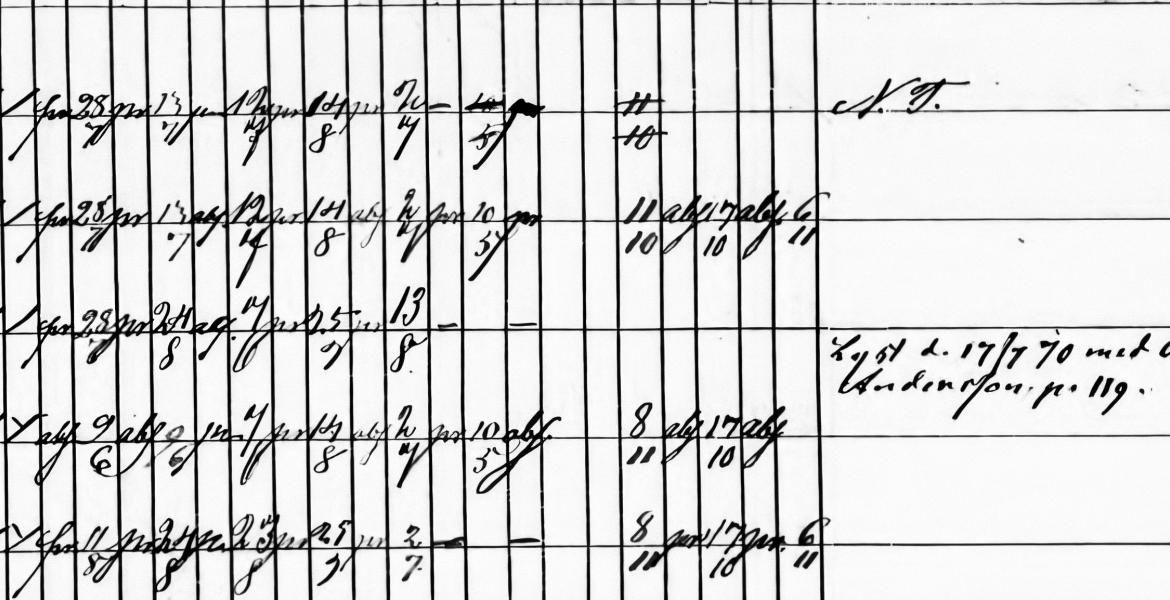 pr 28/7 pr 13/7 pr 12/7 pr 14/8 pr 2/7 — 10/5 11/10 N. T.
pr 28/7 pr 13/7 abs. 12/7 pr 14/8 abs 2/7 pr 10/5 pr 11/10 abs 17/10 abs. 6/11
pr 28 pr 24/8 pr 25/9 pr 13/8 — —
Lyst d. 17/7 70 med
Andersson. p. 119.
abs 9/6 abs 9/6 pr 7 pr 14/8 abs 2/7 pr 10/5 abs. 8/11 abs 17/10 abs
pr 11/8 pr 24/8 pr 23/8 pr 25/9 pr 2/7 — — 8/11 pr 17/10 pr. 6/11